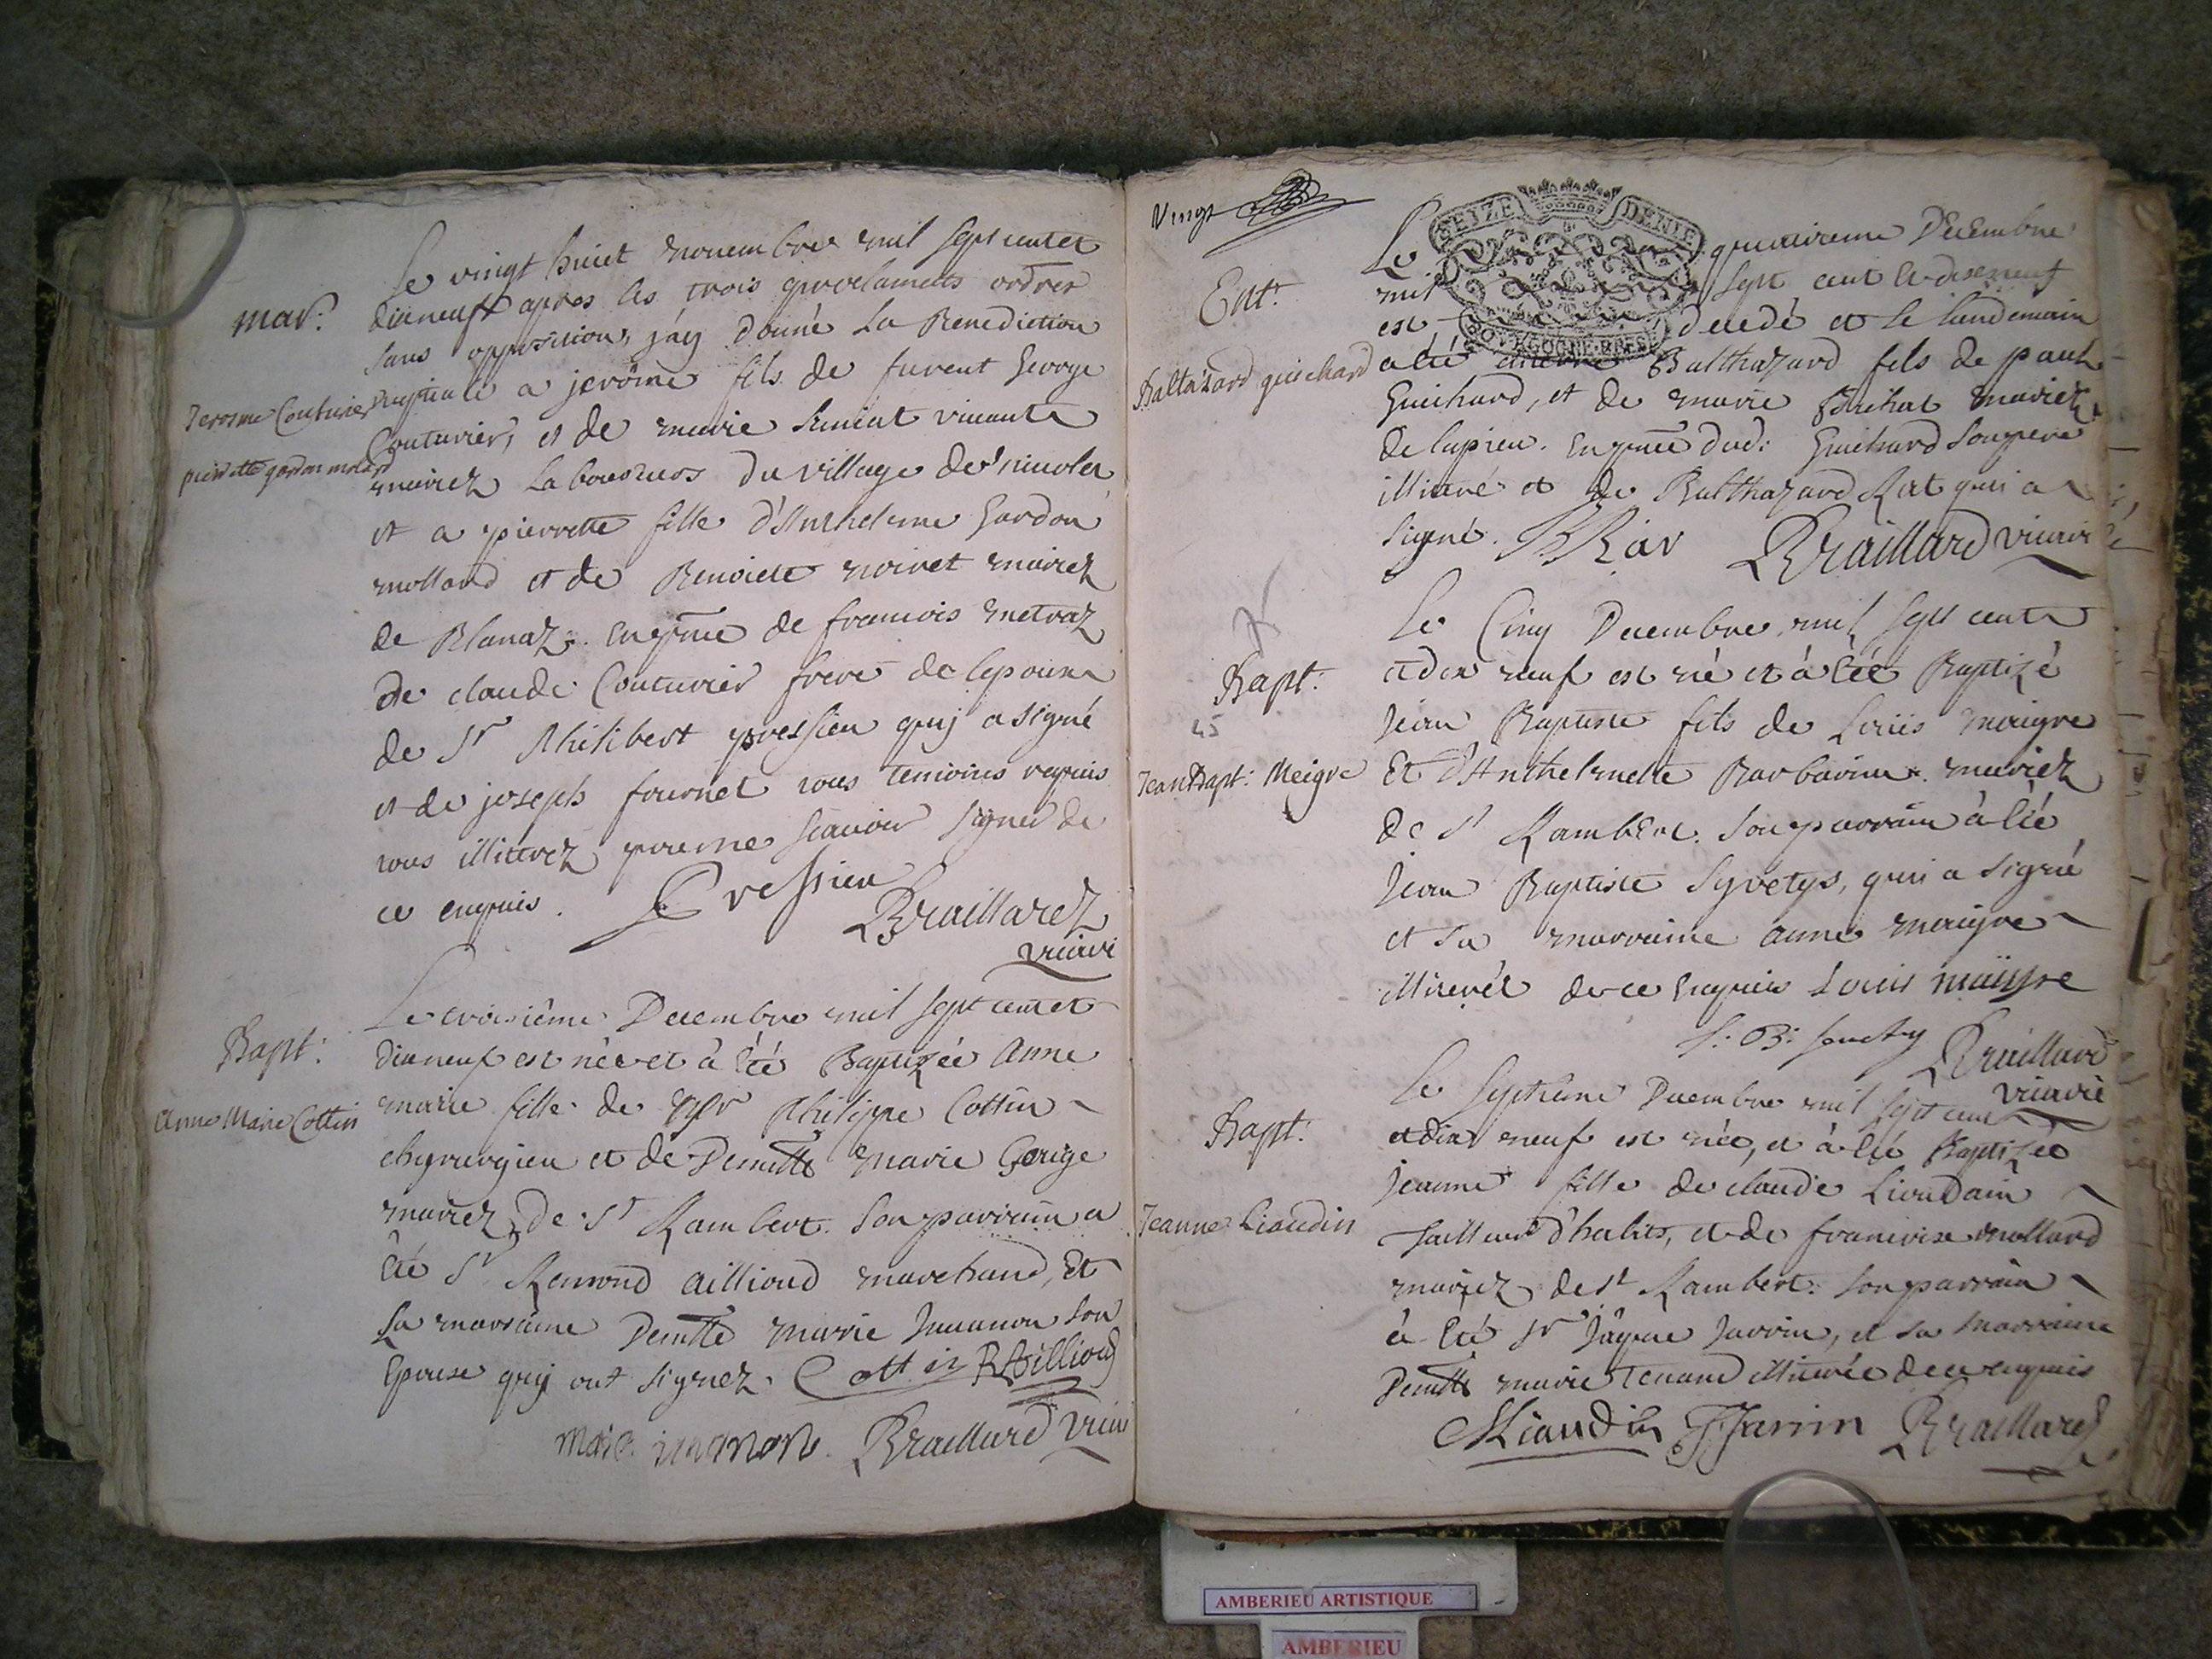 Le vingt huict novembre mil sept cent et
mar:
dixneuf apres les trois proclamats
sans opposition, j'ay donné La Benediction
Jerosme Couturier
nuptiale a jerôme fils de furent George
Couturier, et de marie vivants
pierrette gordon molard
mariez Laboureurs du village de
et a pierrette fille d'Anthelme Gardon
mollard et de Benoiste noivet mariez
de Blanaz. En pnce de francois metraz
de claude Couturier frere de lepoux
de Sr Philibert pressieu quj a signé
et de joseph fournet tous temoins requis
tous illiterez pour ne scavoir signer de
ce enquis. Pressieu
Braillard
vicaire
Le troisiême Decembre mil sept cent et
Bapt:
dixneuf est née et à été Baptizée Anne
Anne Marie Cottin
marie fille de Philippe Cottin
chyrurgien et de Demlle marie George
mariez de St Rambert. Son parrain a
été Sr Remond Aillioud marchand, Et
Sa marraine Demlle marie Juuanon son
Epouse quj ont signez. Cottin RAillioud
marie Braillard vicai
vingt
Le quatrieme Decembre
Ent:
SEIZE DENIE
mil sept cent et diseneuf
est decedé et le lendemain
BOURGOGNE BRESS
Baltazard guichard
a été enterré Balthazard fils de paul
Guichard, et de marie Brichat mariez
de lupieu. En pnce dud: Guichard son pere
illitéré et de Balthazard Rat qui a
signé. BRat Braillard vicair
Le Cinq Decembre mil sept cent
Bapt:
et dix neuf est né et à été Baptizé
45
Jean Baptiste fils de Louis maigre
Jean Bapt: Meigre
Et d'Anthelmette Barbarin mariez
de St Rambert. Son parrain à été
Jean Baptiste Syvetys, qui a signé
et sa marraine anne maigre
illiterée de ce Enquis Louis
J: B: Braillard
vicaire
Le Septieme Decembre mil sept cent
Bapt:
et dix neuf est née, et à été Baptizée
jeanne fille de claude Lioudain
Jeanne Liaudin
Tailleur d'habits, et de francoise mollard
mariez de St Rambert: Son parrain
à été Sr Jâque Jarrin, et sa marraine
Demlle marie Tenand illiterée de ce enquis
CLiaudin JJarrin Braillard
AMBERIEU ARTISTIQUE
AMBERIEU